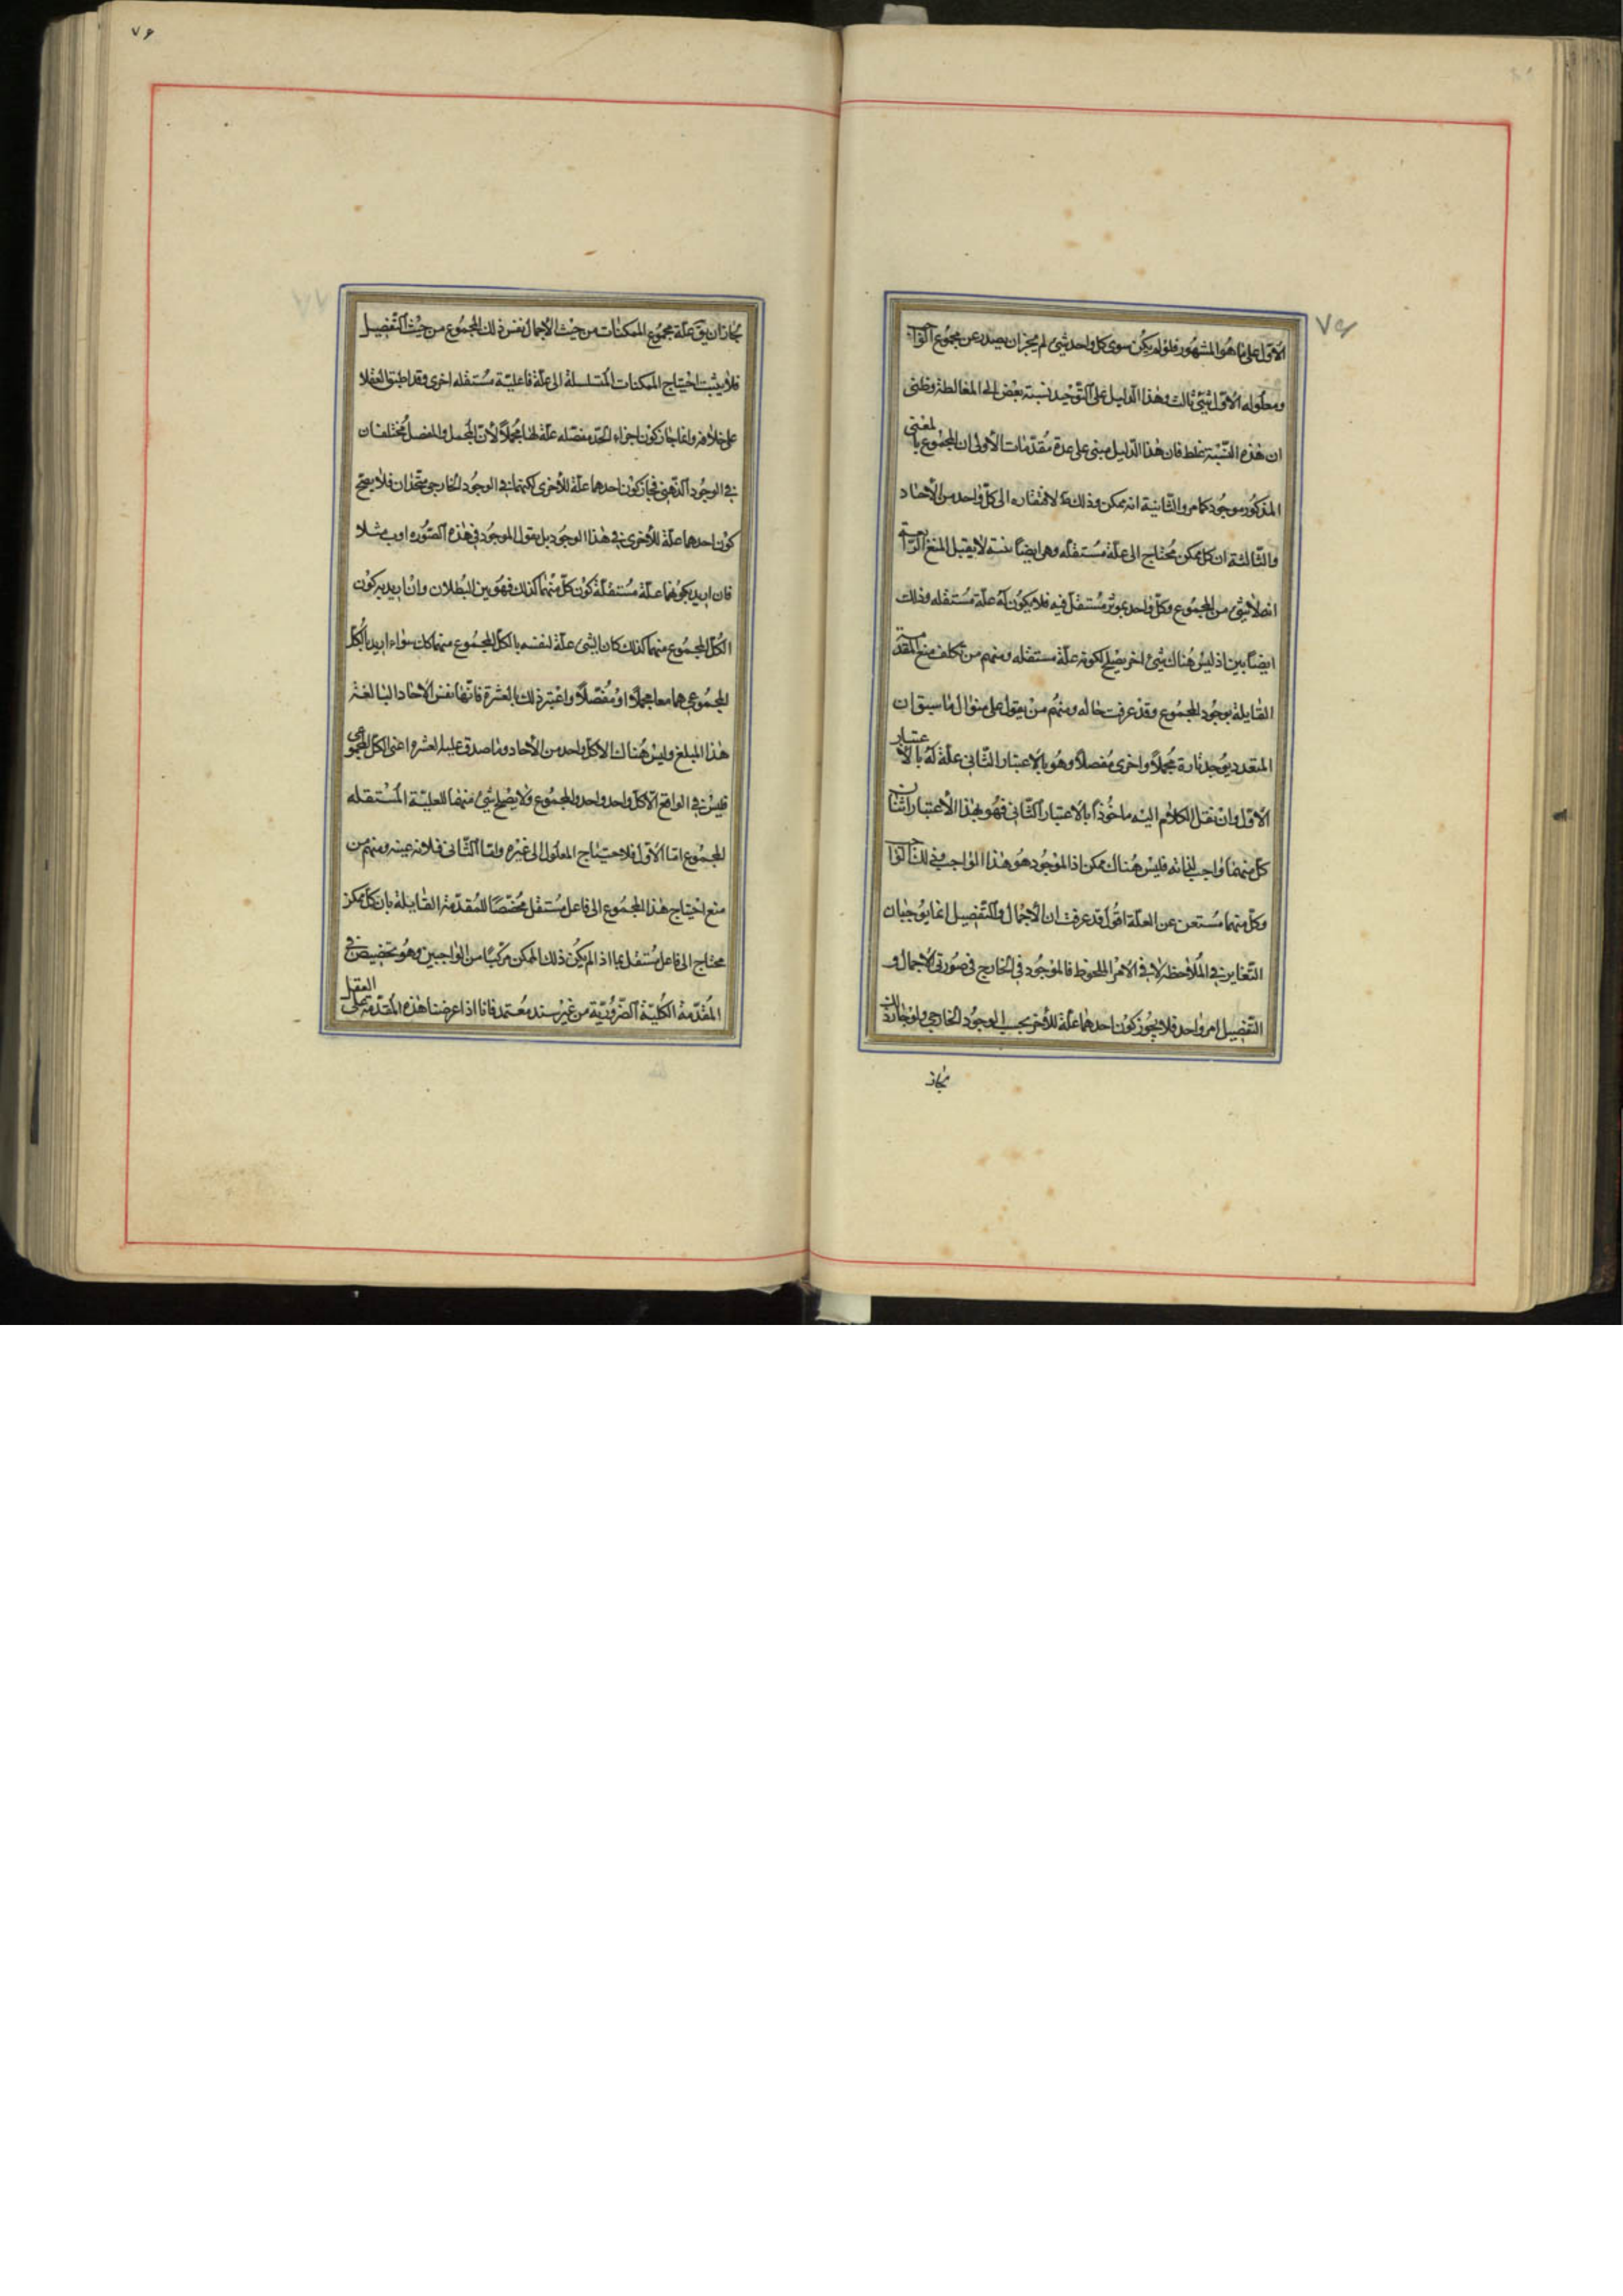 ٧۶
الاول على ما هو المشهور فلو لم يكن سوى كل واحد شئ لم يجز ان يصدر عن مجموع الواجب
ومعلوله الاول شئ ثالث وهذا الدليل على التوحيد نسبته بعض الى المغالطة وظنى
ان هذه النسبة غلط فان هذا الدليل مبنى على عدة مقدمات الأولى ان المجموع بالمعنى
المذكور موجود كما مر والثانية انه ممكن وذلك لافتقاره الى كل واحد من الأحاد
والثالثة ان كل ممكن محتاج الى علة مستقله وهى ايضاً بينة لا يقبل المنع الرابعة
انه لا شئ من المجموع وكل واحد بمؤثر مستقل فيه فلا يكون له علة مستقله وذلك
ايضاً بين اذ ليس هناك شئ اخر يصلح لكونه علة مستقله ومنهم من تكلف منع المقدمة
القايلة بوجود المجموع وقد عرفت حاله ومنهم من يقول على منوال ما سبق ان
المتعدد يوجد تارة مجملاً واخرى مفصلاً وهو بالاعتبار الثانى علة له بالاعتبار
الاول وان نقل الكلام اليه ماخوذاً بالاعتبار الثانى فهو بهذا الاعتبار اثنان
كل منهما واجب لذاته فليس هناك ممكن اذ الموجود هو هذا الواجب وذلك الواجب
وكل منهما مستغن عن العلة اقول قد عرفت ان الاجمال والتفصيل انما يوجبان
التغاير فى الملاحظة لا فى الامر الملحوظ فالموجود فى الخارج فى صورتى الاجمال و
التفصيل امر واحد فلا يجوز كون احدهما علة للأخر بحسب الوجود الخارجى ولو جاز ذلك
لجاز
٧۶
لجاز ان يق علة مجموع الممكنات من حيث الاجمال نفس ذلك المجموع من حيث التفصيل
فلا يثبت احتياج الممكنات المتسلسلة الى علة فاعلية مستقله اخرى وقد اطبق العقلا
على خلافه وانما جاز كون اجزاء الحد مفصله علة لها مجملاً لأن المجمل والمفصل مختلفان
فى الوجود الذهنى فجاز كون احدهما علة للأخرى لكنهما فى الوجود الخارجى متحدان فلا يصح
كون احدهما علة للأخرى فى هذا الوجود بل يقول الموجود فى هذه الصوره ا وب مثلا
فان اريد بكونهما علة مستقلة كون كل منهما كذلك فهو بين البطلان وان اريد به كون
الكل المجموع منهما كذلك كان الشئ علة لنفسه بالكل المجموع منهما كك سواء اريد بالكل
المجموعى هما معا مجملاً او مفصلاً واعتبر ذلك بالعشرة فانها نفس الأحاد البالغة
هذا المبلغ وليس هناك الا كل واحد من الأحاد وما صدق عليه العشره اعنى الكل المجموعى
فليس فى الواقع الا كل واحد واحد والمجموع ولا يصلح شئ منهما للعلية المستقله
للمجموع اما الاول فلاحتياج المعلول الى غيره واما الثانى فلانه عينه ومنهم من
منع احتياج هذا المجموع الى فاعل مستقل مخصصاً للمقدمة القايلة بان كل ممكن
محتاج الى فاعل مستقل بما اذا لم يكن ذلك الممكن مركباً من الواجبين وهو تخصيص فى
المقدمة الكلية الضرورية من غير سند معتمد فانا اذا عرضنا هذه المقدمة على العقل